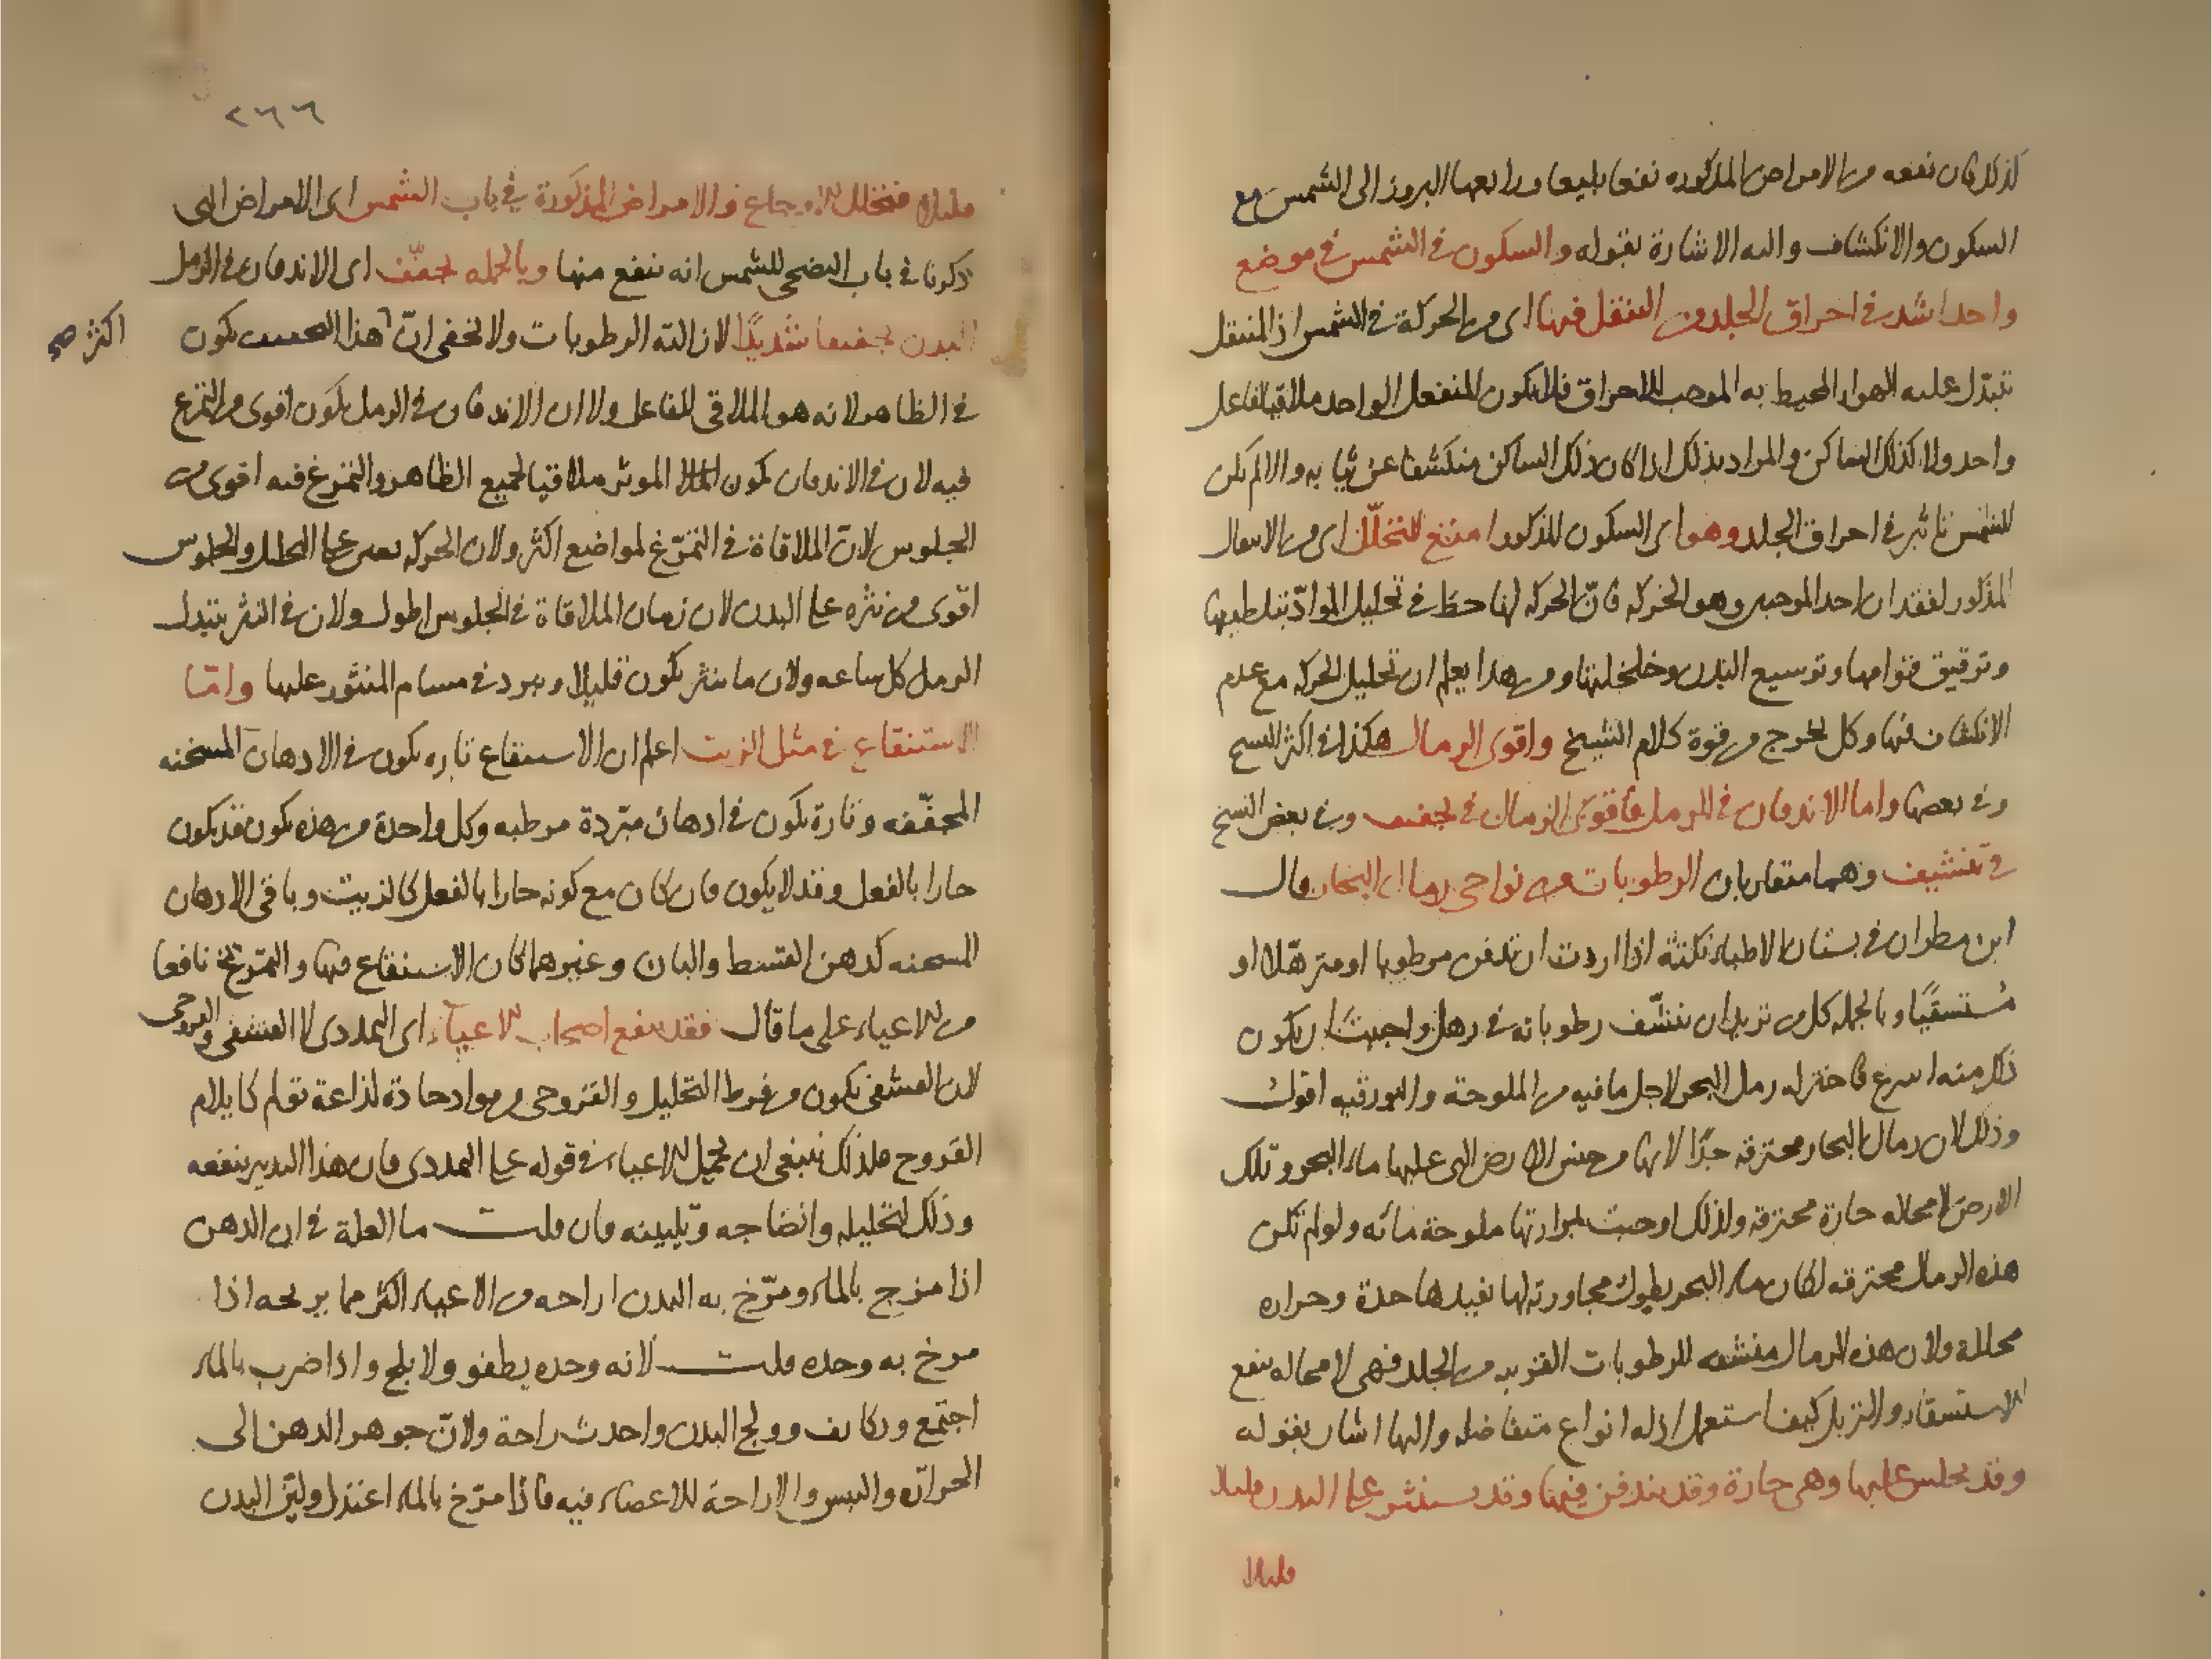 كذلك كان نفعه من الامراض المذكورة نفعا بليغا ورابعها البروز الى الشمس مع
السكون والانكشاف واليه الاشارة بقوله والسكون في الشمس في موضع
واحد اشد في احراق الجلد من التنقل فيها اى من الحركة في الشمس اذ المنتقل
تتبدّل عليه الهواء المحيط به الموجب للاحراق فلا يكون المنفعل الواحد ملاقيا لفاعل
واحد ولا كذلك الساكن والمراد بذلك اذا كان ذلك الساكن منكشفا عن ثيابه والا لم يكن
للشمس تاثير في احراق الجلد وهو اى السكون المذكور امنع للتحلّل اى من الانتقال
المذكور لفقدان احد الموجبين وهو الحركه فانّ الحركه لها حظ في تحليل الموادّ بتلطيفها
وترقيق قوامها وتوسيع البدن وخلخلتها ومن هذا يعلم ان تحليل الحركه مع عدم
الانكشاف فيها وكل يخرج من قوة كلام الشيخ واقوى الرمال هكذا في اكثر النسخ
وفي بعضها واما الاندفان في الرمل فاقوى الرمال في تجفيف وفي بعض النسخ
في تنشيف وهما متقاربان الرطوبات من نواحى رمال البحار قال
ابن مطران في بستان الاطباء نكتة اذا اردت ان تدفن مرطوبا او مترهّلا او
مُستسقيًا وبالجمله كل من تريد ان تنشّف رطوباته في رمل واحببت ان يكون
ذلك منه اسرع فاختر له رمل البحر لاجل ما فيه من الملوحة والبورقيه اقول
وذلك لان رمال البحار محترقه جدًا لانها من جنس الارض التى عليها ماء البحر وتلك
الارض لا محاله حارة محترقه ولذلك اوجبت لمرارتها ملوحة مائه ولو لم تكن
هذه الرمال محترقه لكان ماء البحر بطول مجاورته لها يفيدها حدة وحرارة
محللة ولان هذه الرمال منشفه للرطوبات القريبه من الجلد فهى لا محاله ينفع
الاستسقاء والتربل كيف استعمل اذ له انواع متفاضله واليها اشار بقوله
وقد يجلس عليها وهى حارة وقد يندفن فيها وقد ينثر على البدن قليلا
قليلا
٢٦٦
قليلا فتحلل الاوجاع والامراض المذكورة في باب الشمس اى الامراض التى
ذكرنا في باب التضحى للشمس انه ينفع منها وبالجمله يجفّف اى الاندفان في الرمل
البدن تجفيفا شديدًا لازالته الرطوبات ولا يخفى انّ هذا التجفيف يكون
اكثر صح
في الظاهر لانه هو الملاقى للفاعل ولا ان الاندفان في الرمل يكون اقوى من التمرغ
فيه لان في الاندفان يكون الموثر ملاقيا لجميع الظاهر والتمرغ فيه اقوى من
الجلوس لان الملاقاة في التمرّغ لمواضع اكثر ولان الحركه تعين على التحليل والجلوس
اقوى من نثره على البدن لان زمان الملاقاة في الجلوس اطول ولان في النثر يتبدل
الرمل كل ساعه ولان ما ينثر يكون قليلا ويبرد في مسام المنثور عليها وامّا
الاستنقاع في مثل الزيت اعلم ان الاستنقاع تارة يكون في الادهان المسخنه
المجفّفه وتارة يكون في ادهان مبّردة مرطبه وكل واحدة من هذه يكون قد يكون
حارا بالفعل وقد لا يكون فان كان مع كونه حارا بالفعل كالزيت وباقى الادهان
المسخنه كدهن القسط والبان وغيرهما كان الاستنقاع فيها والتمرّخ نافعا
من الاعياء على ما قال فقد ينفع اصحاب الاعياء اى التمددى لا القشفى والقروحى
لان القشفى يكون من فرط التحليل والقروحى من مواد حادة لذاعة تولم كايلام
القروح فلذلك ينبغى ان يحمل الاعياء في قوله على التمددى فان هذا التدبير ينفعه
وذلك لتحليله وانضاجه وتليينه فان قلت ما العلة في ان الدهن
اذا مزج بالماء ومرّخ به البدن اراحه من الاعياء اكثر مما يريحه اذا
مرخ به وحده قلت لانه وحده يطفو ولا يلج واذا ضرب بالماء
اجتمع وتكاثف وولج البدن واحدث راحة ولانّ جوهر الدهن الى
الحرارة واليبس والاراحة للاعضاء فيه فاذا مرّخ بالماء اعتدل وليّن البدن